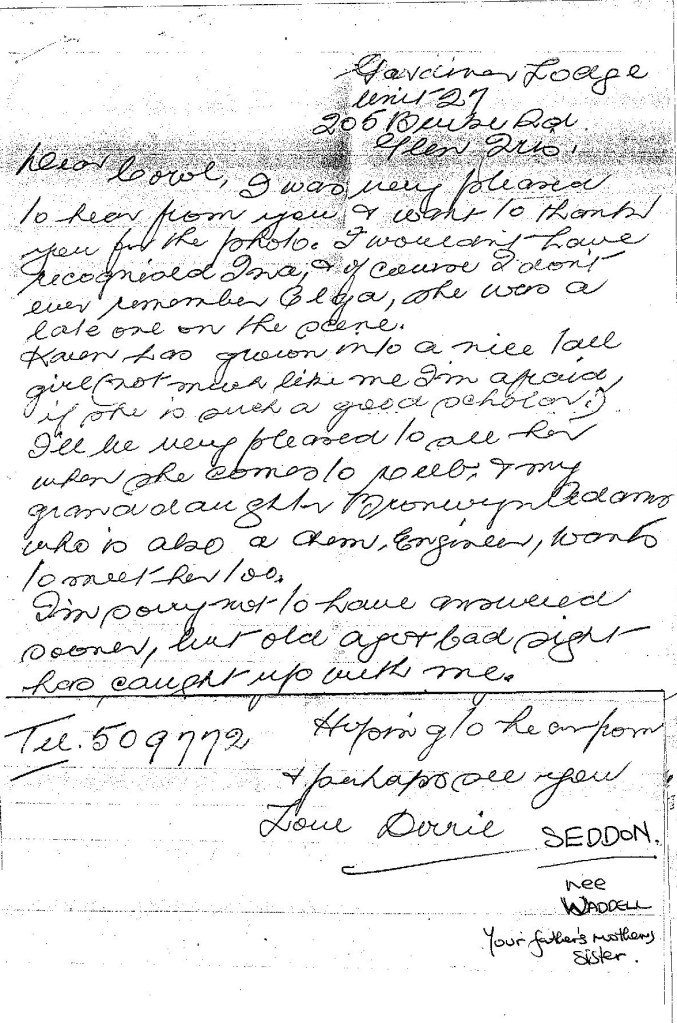 Gardiner Lodge
Unit 27
205 Burke Rd.
Glen Iris.
Dear Carol, I was very pleased
to hear from you & want to thank
you for the photo. I wouldn't have
recognised Ina, & of course I don't
ever remember Elga, she was a
late one on the scene.
Karen has grown into a nice tall
girl (not much like me I'm afraid,
if she is such a good scholar!)
I'll be very pleased to see her
when she comes to Melb. & my
granddaughter Bronwyn Adams
who is also a Chem. Engineer, wants
to meet her too.
I'm sorry not to have answered
sooner, but old age & bad sight
has caught up with me.
Tel. 509772
Hoping to hear from
& perhaps see you
Love Dorrie SEDDON.
nee
WADDELL
Your father's mother's
sister.